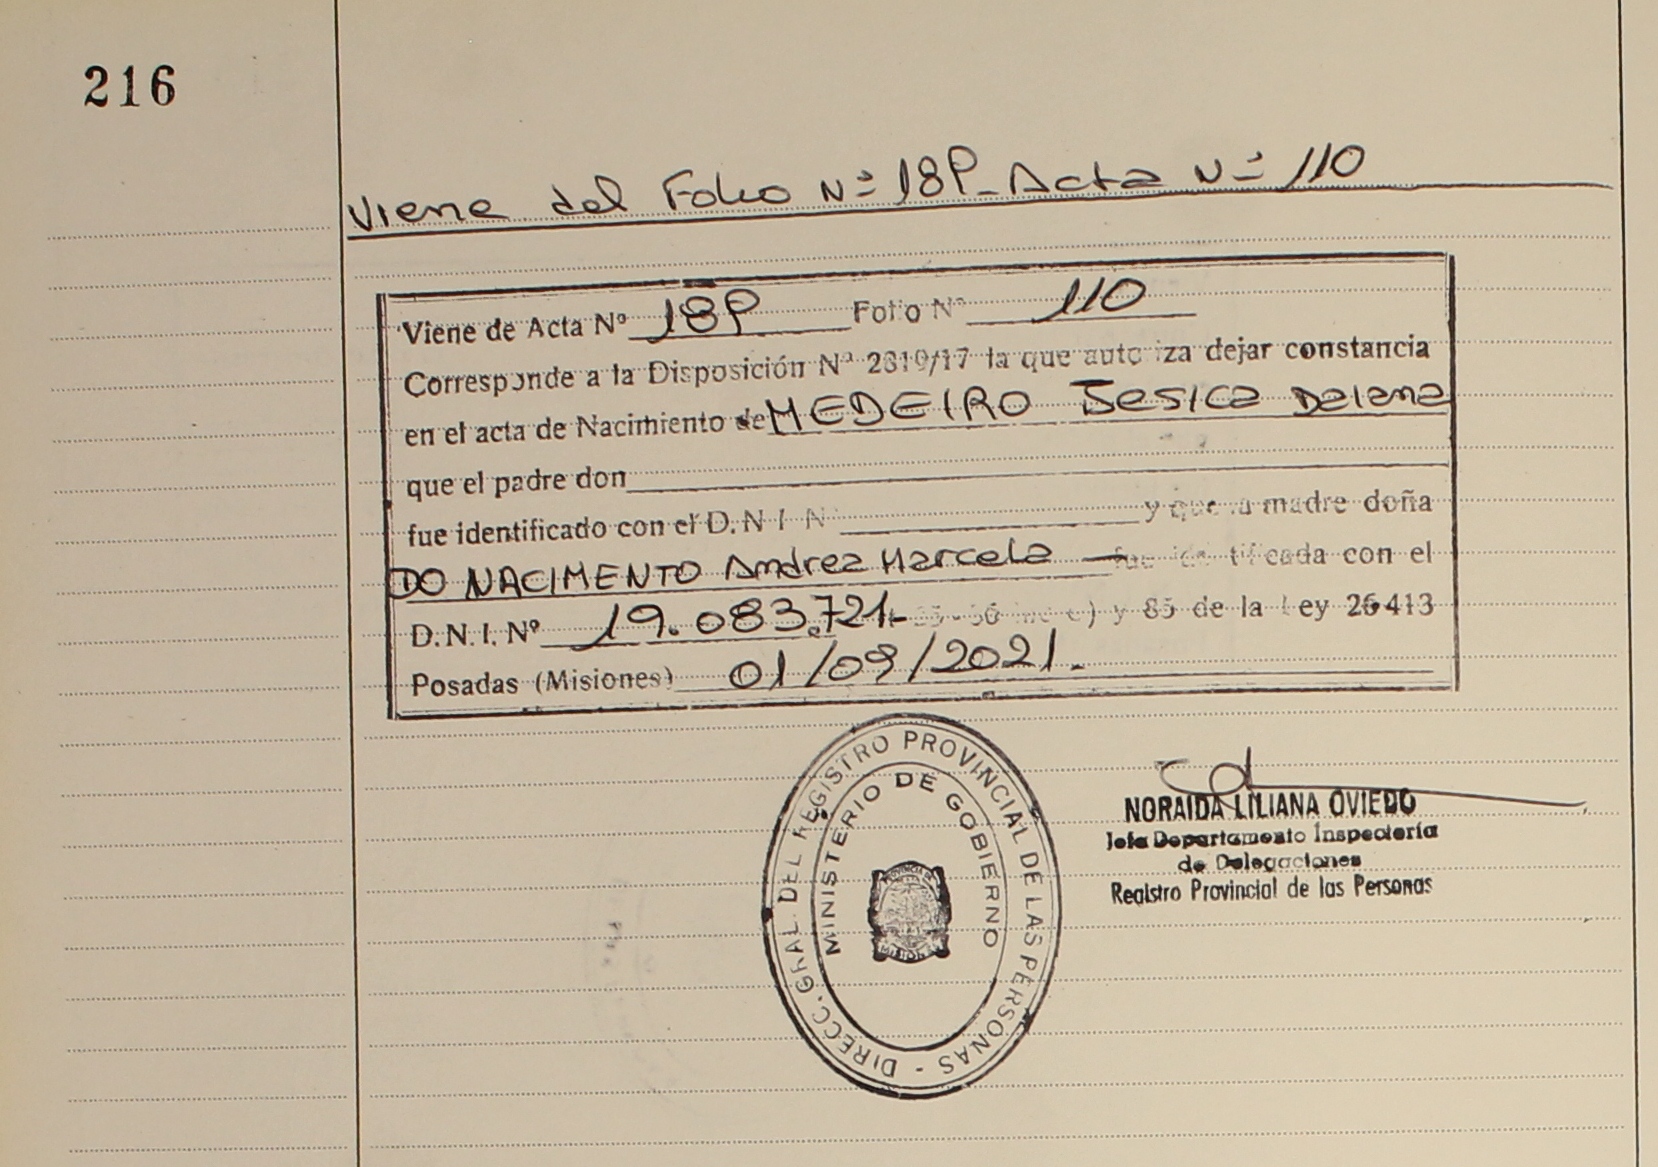 216
Viene del Folio Nº 18P_Acta Nº 110
Viene de Acta Nº 18P Folio Nº 110
Corresponde a la Disposición Nº 2319/17 la que autoriza dejar constancia
en el acta de Nacimiento de MEDEIRO Jesica Daiana
que el padre don
fue identificado con el D.N.I. Nº y que la madre doña
DO NACIMENTO Andrea Marcela fue identificada con el
D.N.I. Nº 19.083.721 inc e) y 85 de la Ley 26413
Posadas (Misiones) 01/09/2021.
DIRECC. GRAL. DEL REGISTRO PROVINCIAL DE LAS PERSONAS -
MINISTERIO DE GOBIERNO
NORAIDA LILIANA OVIEDO
Jefa Departamento Inspectoría
de Delegaciones
Registro Provincial de las Personas